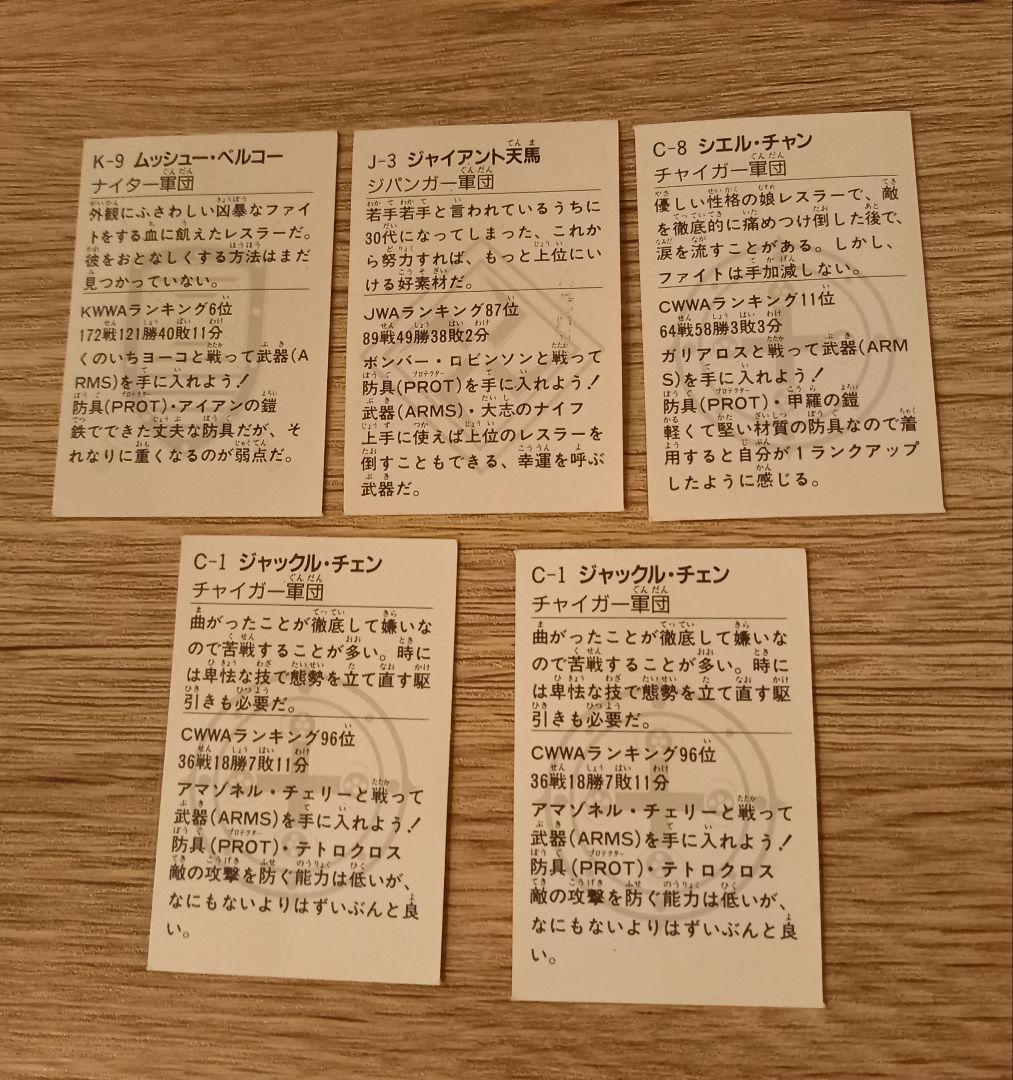 K-9 ムッシュー・ベルコー
ナイター軍団
外観にふさわしい凶暴なファイ
トをする血に飢えたレスラーだ。
彼をおとなしくする方法はまだ
見つかっていない。
KWWAランキング6位
172戦121勝40敗11分
くのいちヨーコと戦って武器(A
RMS)を手に入れよう!
防具(PROT)・アイアンの鎧
鉄でできた丈夫な防具だが、そ
れなりに重くなるのが弱点だ。
J-3 ジャイアント天馬
ジパンガー軍団
若手若手と言われているうちに
30代になってしまった、これか
ら努力すれば、もっと上位にい
ける好素材だ。
JWAランキング87位
89戦49勝38敗2分
ボンバー・ロビンソンと戦って
防具(PROT)を手に入れよう!
武器(ARMS)・大志のナイフ
上手に使えば上位のレスラーを
倒すこともできる、幸運を呼ぶ
武器だ。
C-8 シエル・チャン
チャイガー軍団
優しい性格の娘レスラーで、敵
を徹底的に痛めつけ倒した後で、
涙を流すことがある。しかし、
ファイトは手加減しない。
CWWAランキング11位
64戦58勝3敗3分
ガリアロスと戦って武器(ARM
S)を手に入れよう!
防具(PROT)・甲羅の鎧
軽くて堅い材質の防具なので着
用すると自分が1ランクアップ
したように感じる。
C-1 ジャックル・チェン
チャイガー軍団
曲がったことが徹底して嫌いな
ので苦戦することが多い。時に
は卑怯な技で態勢を立て直す駆
引きも必要だ。
CWWAランキング96位
36戦18勝7敗11分
アマゾネル・チェリーと戦って
武器(ARMS)を手に入れよう!
防具(PROT)・テトロクロス
敵の攻撃を防ぐ能力は低いが、
なにもないよりはずいぶんと良
い。
C-1 ジャックル・チェン
チャイガー軍団
曲がったことが徹底して嫌いな
ので苦戦することが多い。時に
は卑怯な技で態勢を立て直す駆
引きも必要だ。
CWWAランキング96位
36戦18勝7敗11分
アマゾネル・チェリーと戦って
武器(ARMS)を手に入れよう!
防具(PROT)・テトロクロス
敵の攻撃を防ぐ能力は低いが、
なにもないよりはずいぶんと良
い。